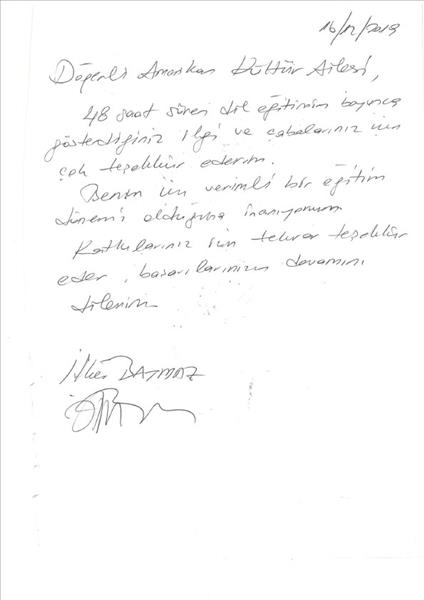 16/12/2019
Değerli Amerikan Kültür Ailesi,
48 saat süren dil eğitimim boyunca
gösterdiğiniz ilgi ve çabalarınız için
çok teşekkür ederim.
Benim için verimli bir eğitim
dönemi olduğuna inanıyorum
Katkılarınız için tekrar teşekkür
eder, başarılarınızın devamını
dilerim
İlker